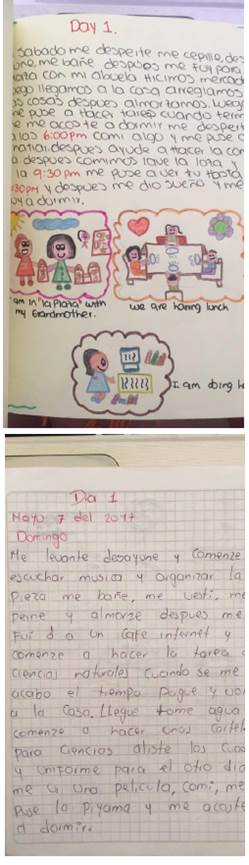 Day 1.
sabado me desperte me cepille, des
one, me bañe despues me fui para
lata con mi abuela Hicimos mercado
ego llegamos a la casa arreglamos
as cosas despues almorzamos. Lueg
me puse a Hacer tarea cuando term
e me acoste a dormir me despert
a las 6:00pm comi algo y me puse
despues ayude a Hacer la com
a despues comimos lave la loza y
la 9:30 pm me puse a ver tv hasta
:30pm y despues me dio sueño y me
uy a dormir.
am in "la Plana" with
my Grandmother.
we are having lunch
I am doing h
Dia 1
Mayo 7 del 2017
Domingo
Me levante desayune y comenze
escuchar musica y organizar la
pieza me bañe, me vesti, me
peine y almorze despues me
Fui d a un Cafe internet y
comenze a hacer la tarea
ciencias naturales Cuando se me
acabo el tiempo Pague y
a la Casa. Llegue tome agua
comenze a hacer unas cartel
para Ciencias aliste los
y uniforme para el otro dia
me a una pelicula, comi, me
Puse la Piyama y me acoste
a dormir.